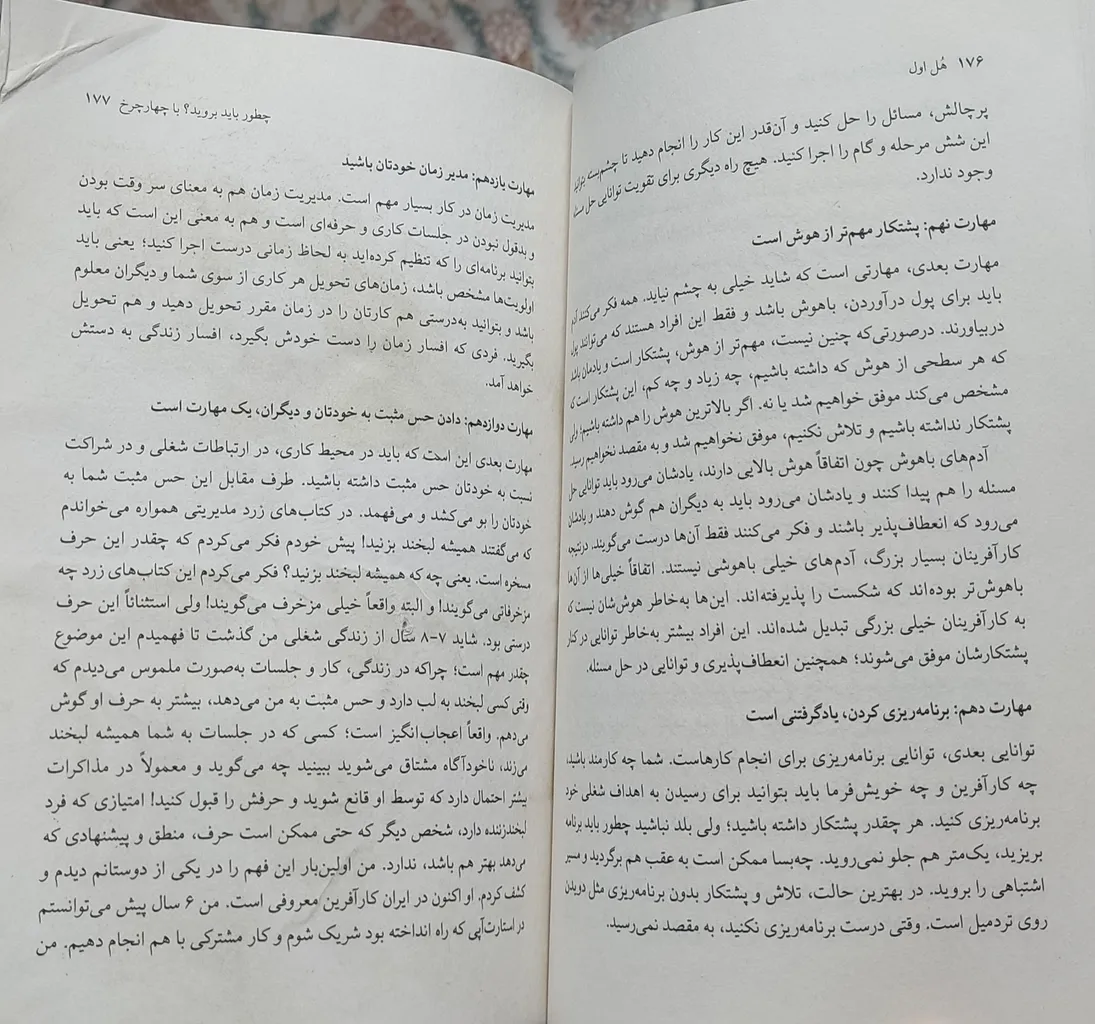 ۱۷۶ هُل اول
پرچالش، مسائل را حل کنید و آن‌قدر این کار را انجام دهید تا چشم‌بسته بتوانید
این شش مرحله و گام را اجرا کنید. هیچ راه دیگری برای تقویت توانایی حل مسئله
وجود ندارد.
مهارت نهم: پشتکار مهم‌تر از هوش است
مهارت بعدی، مهارتی است که شاید خیلی به چشم نیاید. همه فکر می‌کنند آدم
باید برای پول درآوردن، باهوش باشد و فقط این افراد هستند که می‌توانند پول
دربیاورند. درصورتی‌که چنین نیست، مهم‌تر از هوش، پشتکار است و یادمان باشد
که هر سطحی از هوش که داشته باشیم، چه زیاد و چه کم، این پشتکار است که
مشخص می‌کند موفق خواهیم شد یا نه. اگر بالاترین هوش را هم داشته باشیم؛ ولی
پشتکار نداشته باشیم و تلاش نکنیم، موفق نخواهیم شد و به مقصد نخواهیم رسید.
آدم‌های باهوش چون اتفاقاً هوش بالایی دارند، یادشان می‌رود باید توانایی حل
مسئله را هم پیدا کنند و یادشان می‌رود باید به دیگران هم گوش دهند و یادشان
می‌رود که انعطاف‌پذیر باشند و فکر می‌کنند فقط آن‌ها درست می‌گویند. درنتیجه
کارآفرینان بسیار بزرگ، آدم‌های خیلی باهوشی نیستند. اتفاقاً خیلی‌ها از آن‌ها
باهوش‌تر بوده‌اند که شکست را پذیرفته‌اند. این‌ها به‌خاطر هوش‌شان نیست که
به کارآفرینان خیلی بزرگی تبدیل شده‌اند. این افراد بیشتر به‌خاطر توانایی در کنار
پشتکارشان موفق می‌شوند؛ همچنین انعطاف‌پذیری و توانایی در حل مسئله.
مهارت دهم: برنامه‌ریزی کردن، یادگرفتنی است
توانایی بعدی، توانایی برنامه‌ریزی برای انجام کارهاست. شما چه کارمند باشید،
چه کارآفرین و چه خویش‌فرما باید بتوانید برای رسیدن به اهداف شغلی خود
برنامه‌ریزی کنید. هر چقدر پشتکار داشته باشید؛ ولی بلد نباشید چطور باید برنامه
بریزید، یک‌متر هم جلو نمی‌روید. چه‌بسا ممکن است به عقب هم برگردید و مسیر
اشتباهی را بروید. در بهترین حالت، تلاش و پشتکار بدون برنامه‌ریزی مثل دویدن
روی تردمیل است. وقتی درست برنامه‌ریزی نکنید، به مقصد نمی‌رسید.
چطور باید بروید؟ با چهارچرخ ۱۷۷
مهارت یازدهم: مدیر زمان خودتان باشید
مدیریت زمان در کار بسیار مهم است. مدیریت زمان هم به معنای سر وقت بودن
و بدقول نبودن در جلسات کاری و حرفه‌ای است و هم به معنی این است که باید
بتوانید برنامه‌ای را که تنظیم کرده‌اید به لحاظ زمانی درست اجرا کنید؛ یعنی باید
اولویت‌ها مشخص باشد، زمان‌های تحویل هر کاری از سوی شما و دیگران معلوم
باشد و بتوانید به‌درستی هم کارتان را در زمان مقرر تحویل دهید و هم تحویل
بگیرید. فردی که افسار زمان را دست خودش بگیرد، افسار زندگی به دستش
خواهد آمد.
مهارت دوازدهم: دادن حس مثبت به خودتان و دیگران، یک مهارت است
مهارت بعدی این است که باید در محیط کاری، در ارتباطات شغلی و در شراکت
نسبت به خودتان حس مثبت داشته باشید. طرف مقابل این حس مثبت شما به
خودتان را بو می‌کشد و می‌فهمد. در کتاب‌های زرد مدیریتی همواره می‌خواندم
که می‌گفتند همیشه لبخند بزنید! پیش خودم فکر می‌کردم که چقدر این حرف
مسخره است. یعنی چه که همیشه لبخند بزنید؟ فکر می‌کردم این کتاب‌های زرد چه
مزخرفاتی می‌گویند! و البته واقعاً خیلی مزخرف می‌گویند! ولی استثنائاً این حرف
درستی بود. شاید ۷-۸ سال از زندگی شغلی من گذشت تا فهمیدم این موضوع
چقدر مهم است؛ چراکه در زندگی، کار و جلسات به‌صورت ملموس می‌دیدم که
وقتی کسی لبخند به لب دارد و حس مثبت به من می‌دهد، بیشتر به حرف او گوش
می‌دهم. واقعاً اعجاب‌انگیز است؛ کسی که در جلسات به شما همیشه لبخند
می‌زند، ناخودآگاه مشتاق می‌شوید ببینید چه می‌گوید و معمولاً در مذاکرات
بیشتر احتمال دارد که توسط او قانع شوید و حرفش را قبول کنید! امتیازی که فرد
لبخندزننده دارد، شخص دیگر که حتی ممکن است حرف، منطق و پیشنهادی که
می‌دهد بهتر هم باشد، ندارد. من اولین‌بار این فهم را در یکی از دوستانم دیدم و
کشف کردم. او اکنون در ایران کارآفرین معروفی است. من ۶ سال پیش می‌توانستم
در استارت‌آپی که راه انداخته بود شریک شوم و کار مشترکی با هم انجام دهیم. من